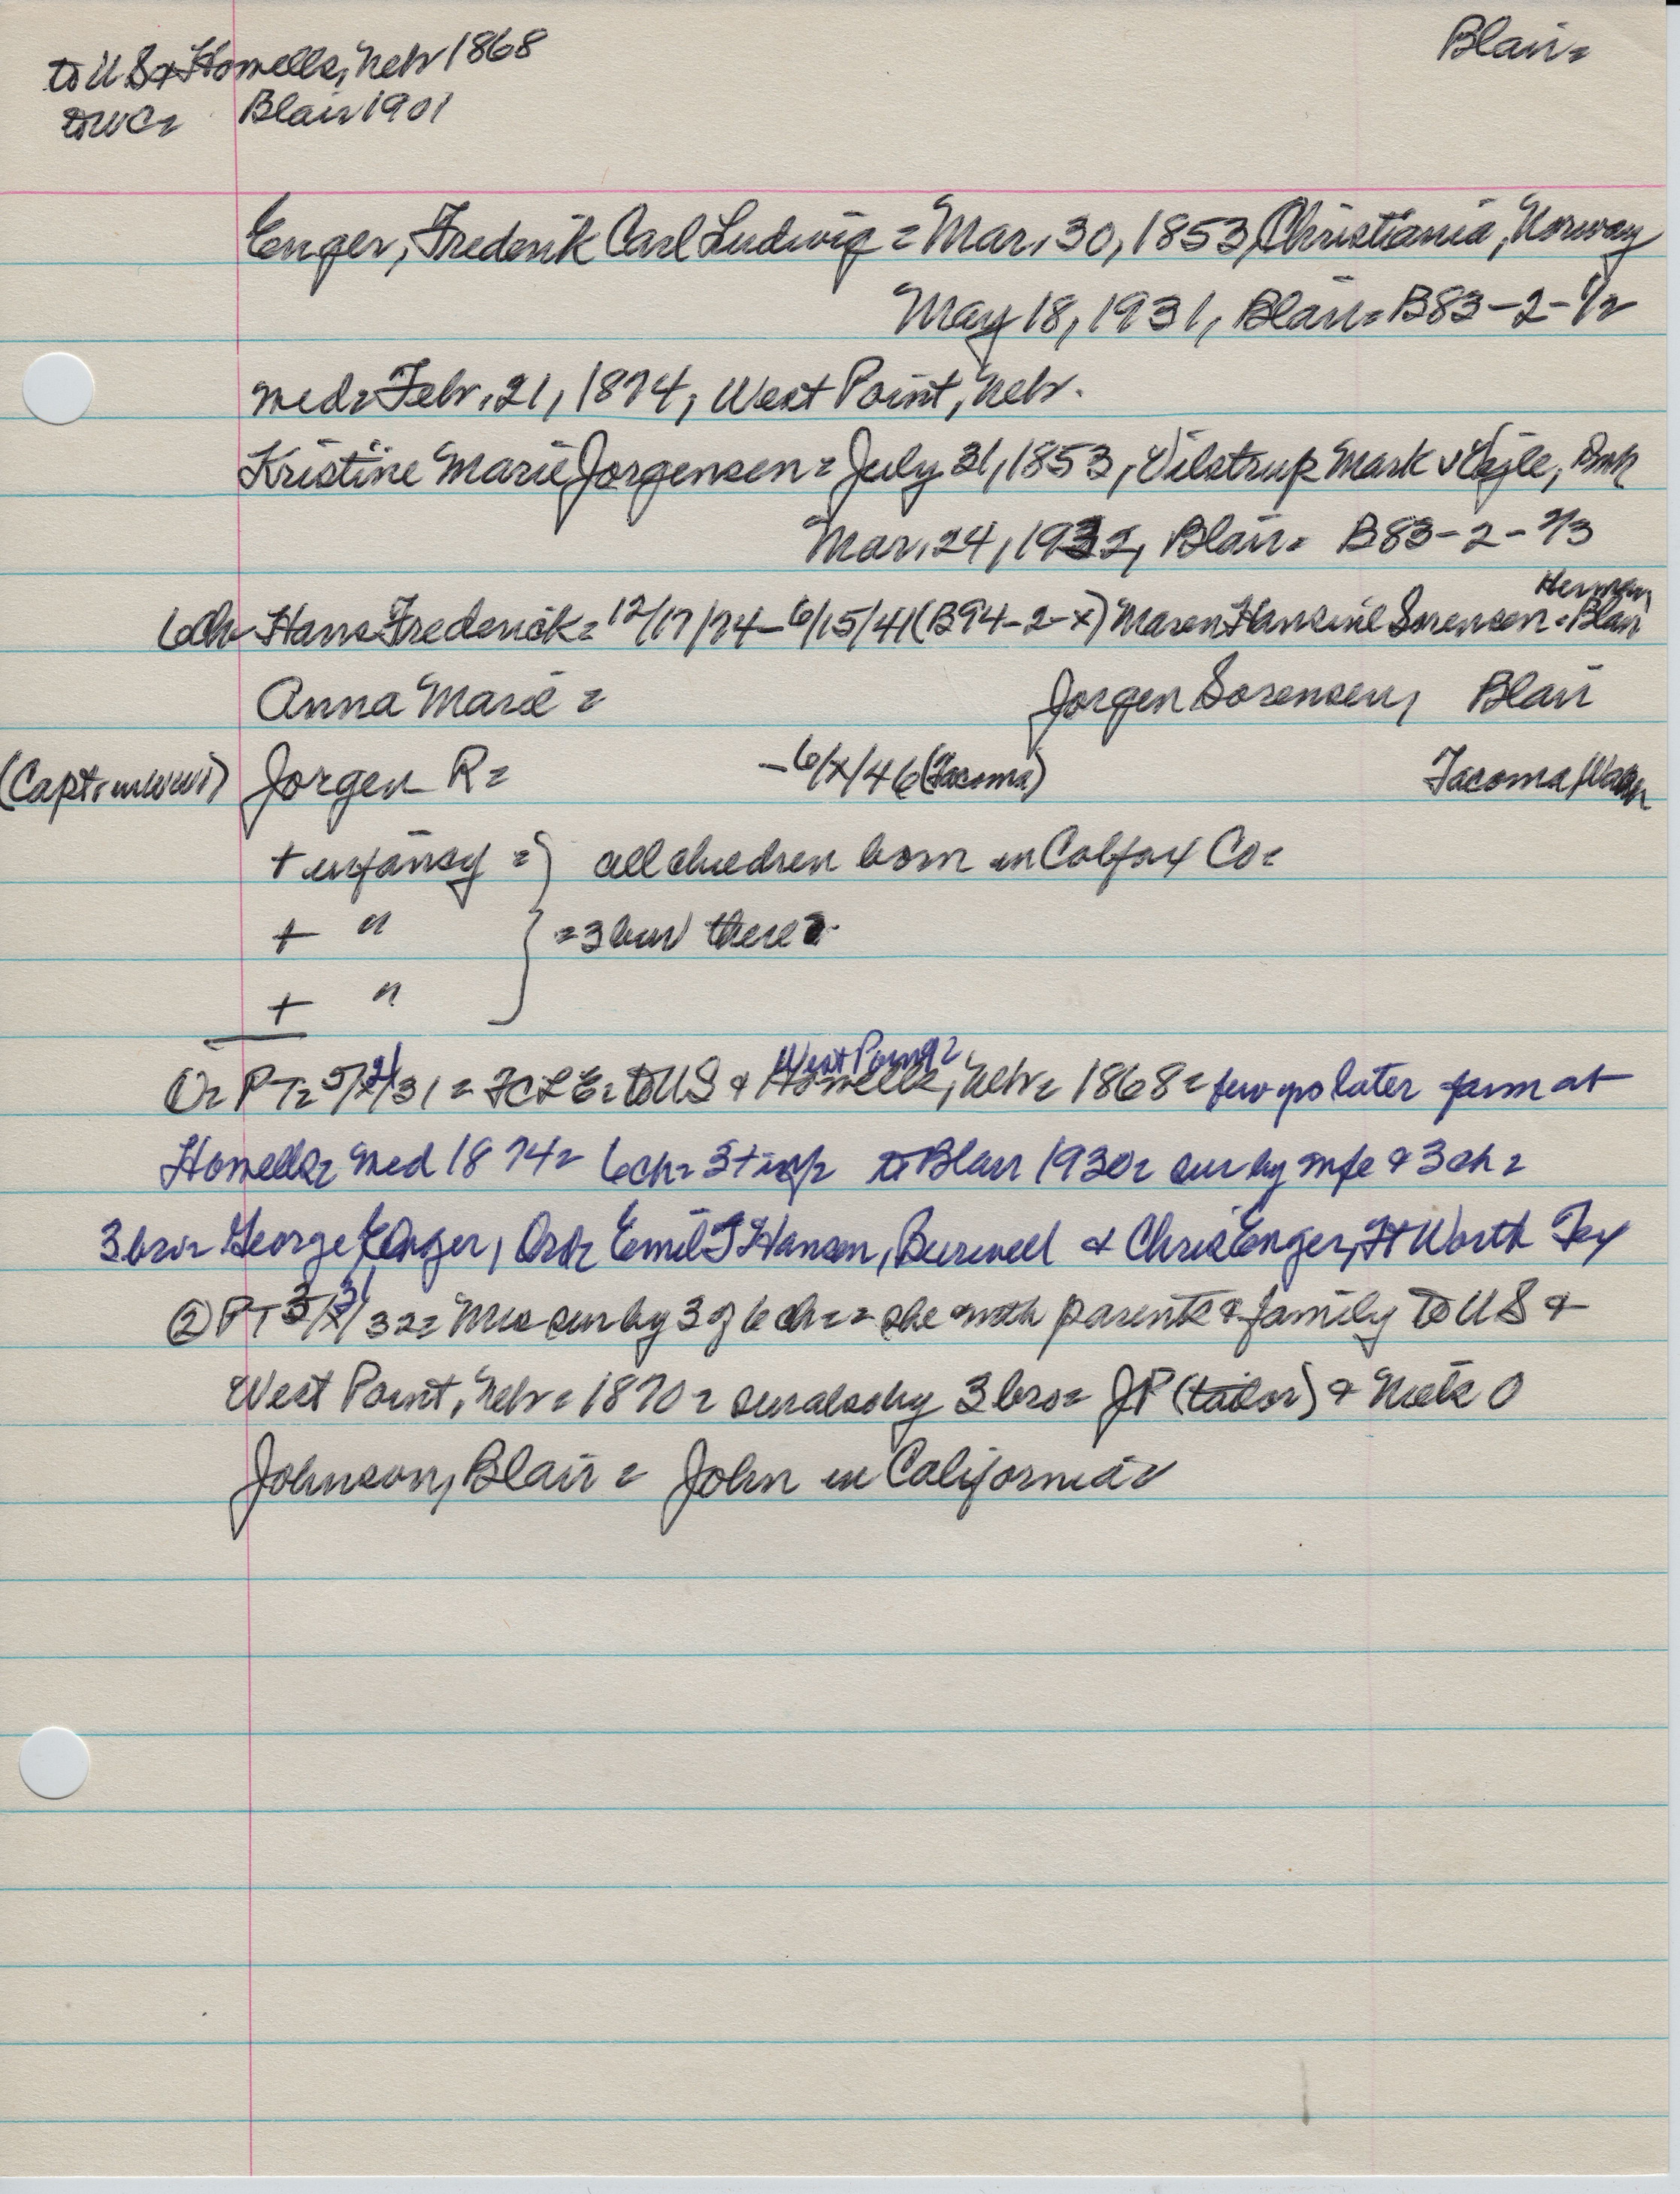 to US & Howells, Nebr 1868
Blair =
to WC = Blair 1901
Enger, Frederik Carl Ludwig = Mar. 30, 1853, Christiania, Norway
May 18, 1931, Blair = B83-2-1/2
med = Febr. 21, 1874, West Point, Nebr.
Kristine Marie Jorgensen = July 31, 1853, Vilstrup Mark v Vejle, Dnk
Mar. 24, 1932, Blair = B83-2-2/3
Herman,
6ch - Hans Frederick = 12/17/74 - 6/15/41 (B94-2-x) Maren Hansine Sorensen = Blair
Anna Marie = Jorgen Sorensen, Blair
(Capt. in WWI) Jorgen R = - 6/x/46 (Tacoma) Tacoma, Wash
+ infancy = } all children born in Colfax Co =
+ " } = 3 bur there
+ "
West Point =
PT = 5/21/31 = FCLE = to US & Howells, Nebr = 1868 = few yrs later farm at
Howells = med 1874 = 6ch = 3 + inf = to Blair 1930 = sur by wife & 3 ch =
3 bro = George Enger, Ord = Emil T Hansen, Burwell & Chris Enger, Ft Worth Tex
② PT 3/31/32 = Mrs sur by 3 of 6 ch = = she with parents & family to US &
West Point, Nebr = 1870 = sur also by 3 bro = JP (tailor) & Niels O
Johnson, Blair = John in California =